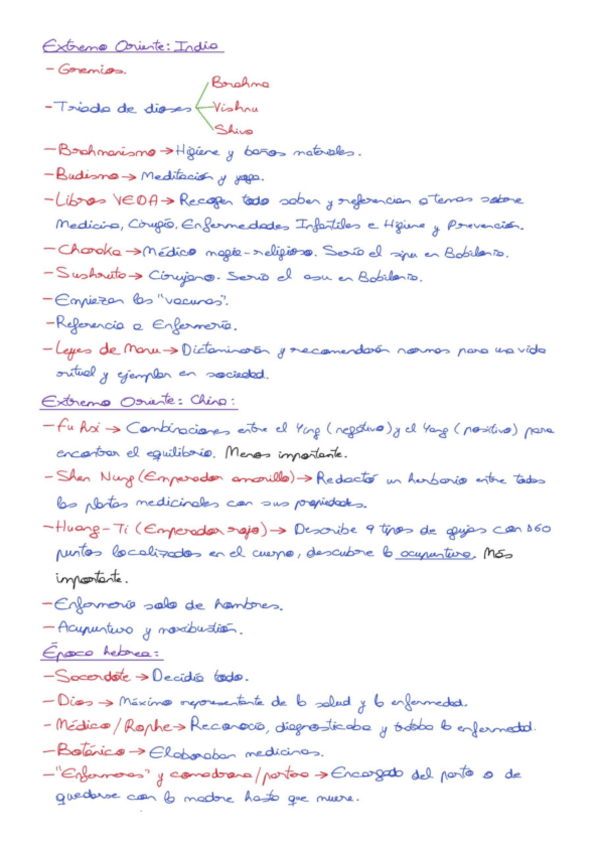 Extremo Oriente: India
- Gremios.
- Triada de dioses
Brahma
Vishnu
Shiva
- Brahmanismo → Higiene y baños materiales.
- Budismo → Meditación y yoga.
- Libros VEDA → Recogen todo saber y referencian a temas sobre
Medicina, Cirugía, Enfermedades Infantiles e Higiene y Prevención.
- Charaka → Médico magia-religioso. Sería el sipu en Babilonia.
- Sushruta → Cirujano. Sería el asu en Babilonia.
- Empiezan las "vacunas".
- Referencia a Enfermería.
- Leyes de Manu → Dictaminarán y recomendarán normas para una vida
ritual y ejemplar en sociedad.
Extremo Oriente: China:
- Fu hsi → Combinaciones entre el Ying (negativo) y el Yang (positivo) para
encontrar el equilibrio. Menos importante.
- Shen Nung (Emperador amarillo) → Redactó un herbario entre todas
las plantas medicinales con sus propiedades.
- Huang-Ti (Emperador rojo) → Describe 9 tipos de agujas con 360
puntos localizados en el cuerpo, descubre la acupuntura. Más
importante.
- Enfermería solo de hombres.
- Acupuntura y moxibustión.
Época hebrea:
- Sacerdote → Decidía todo.
- Dios → Máximo representante de la salud y la enfermedad.
- Médico/Rophe → Reconocía, diagnosticaba y trataba la enfermedad.
- Botánico → Elaboraban medicinas.
- "Enfermeras" y comadrona/partera → Encargada del parto o de
quedarse con la madre hasta que muere.